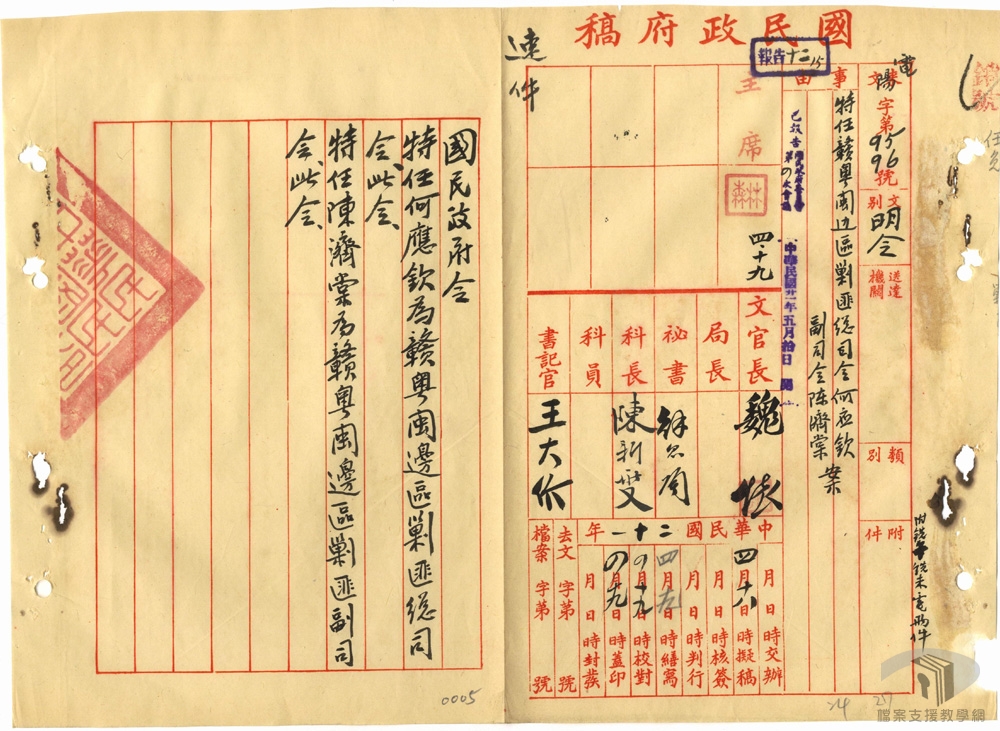 國民政府稿
速件
報告十二
15
電
陽字第9596號
文別
明令
送達機關
類別
附件
事由
特任贛粵閩边區剿匪總司令何应欽
副司令陳濟棠案
主席
四、十九
已報告
第四次會議
中華民國廿一年五月拾日
文官長
魏懷
局長
祕書
科長
陳新燮
科員
書記官
王大介
中華民國二十一年
月 日 時交辦
四月十八日 時擬稿
月 日 時核簽
月 日 時判行
四月九日 時繕寫
四月十九日 時校對
四月十九日 時蓋印
月 日 時封發
去文 字第 號
檔案 字第 號
國民政府令
特任何應欽為贛粵閩邊區剿匪總司
令、此令、
特任陳濟棠為贛粵閩邊區剿匪副司
令、此令、
0005
24
25
檔案支援教學網